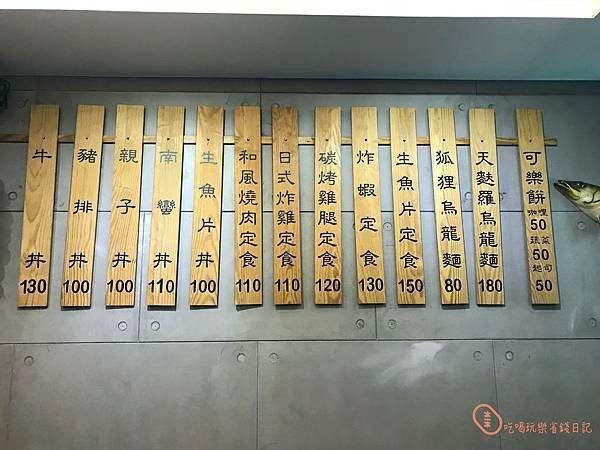 牛丼
130
豬排丼
100
親子丼
100
南蠻丼
110
生魚片丼
100
和風燒肉定食
110
日式炸雞定食
110
碳烤雞腿定食
120
炸蝦定食
130
生魚片定食
150
狐狸烏龍麵
80
天麩羅烏龍麵
180
可樂餅
咖哩
50
蔬菜
50
起司
50
吃喝玩樂省錢日記